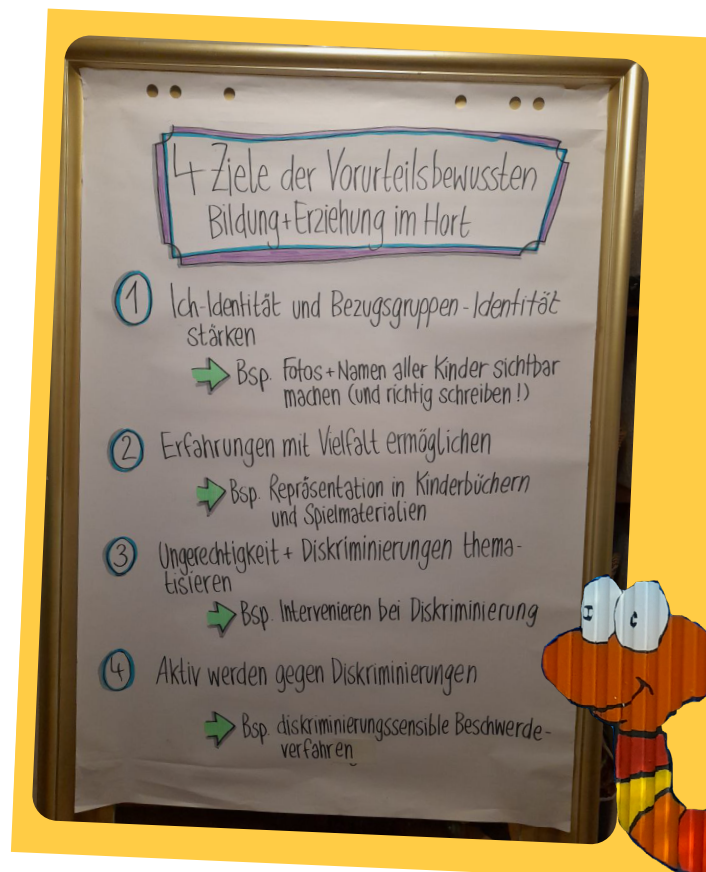 4 Ziele der Vorurteilsbewussten
Bildung+Erziehung im Hort
1 Ich-Identität und Bezugsgruppen-Identität
stärken
Bsp. Fotos+Namen aller Kinder sichtbar
machen (und richtig schreiben!)
2 Erfahrungen mit Vielfalt ermöglichen
Bsp. Repräsentation in Kinderbüchern
und Spielmaterialien
3 Ungerechtigkeit + Diskriminierungen thema-
tisieren
Bsp. Intervenieren bei Diskriminierung
4 Aktiv werden gegen Diskriminierungen
Bsp. diskriminierungssensible Beschwerde-
verfahren